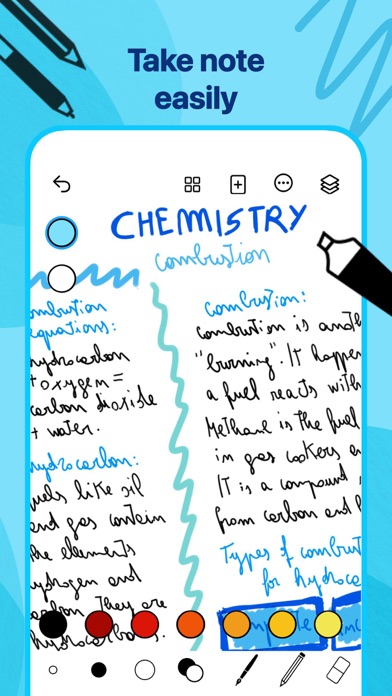 Take note
easily
CHEMISTRY
combustion
ombustion
equations:
hydrocarbon
+ oxygen =
carbon dioxide
+ water.
hydrocarbon:
uels like oil
and gas contain
the elements
hydrogen and
carbon. They are
hydrocarbons.
Combustion:
Combustion is anoth
"burning". It happen
a fuel reacts with
Methane is the fuel
in gas cookers an
It is a compound
from carbon and h
Types of combust
for hydroca